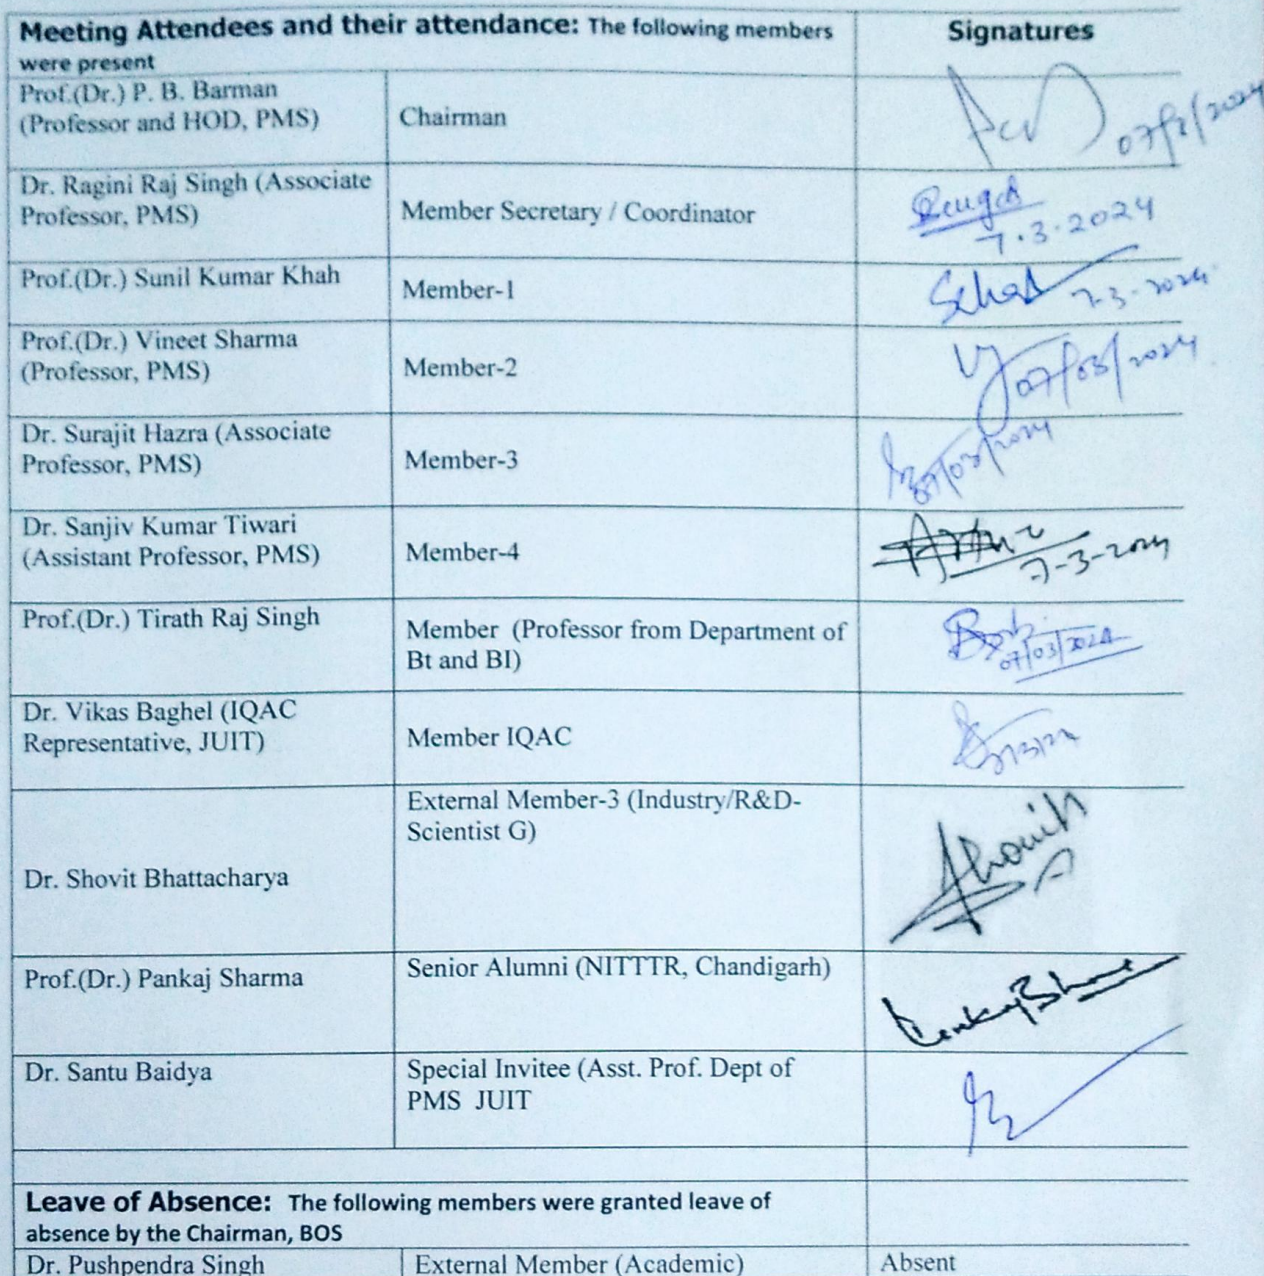 Meeting Attendees and their attendance: The following members
were present
Signatures
Prof.(Dr.) P. B. Barman
(Professor and HOD, PMS)
Chairman
Dr. Ragini Raj Singh (Associate
Professor, PMS)
Member Secretary / Coordinator
7.3.2024
Prof.(Dr.) Sunil Kumar Khah
Member-1
7-3-2024
Prof.(Dr.) Vineet Sharma
(Professor, PMS)
Member-2
07/03/2024
Dr. Surajit Hazra (Associate
Professor, PMS)
Member-3
07/03/2024
Dr. Sanjiv Kumar Tiwari
(Assistant Professor, PMS)
Member-4
7-3-2024
Prof.(Dr.) Tirath Raj Singh
Member (Professor from Department of
Bt and BI)
07/03/2024
Dr. Vikas Baghel (IQAC
Representative, JUIT)
Member IQAC
Dr. Shovit Bhattacharya
External Member-3 (Industry/R&D-
Scientist G)
Shovit
Prof.(Dr.) Pankaj Sharma
Senior Alumni (NITTTR, Chandigarh)
Dr. Santu Baidya
Special Invitee (Asst. Prof. Dept of
PMS JUIT
Leave of Absence: The following members were granted leave of
absence by the Chairman, BOS
Dr. Pushpendra Singh
External Member (Academic)
Absent